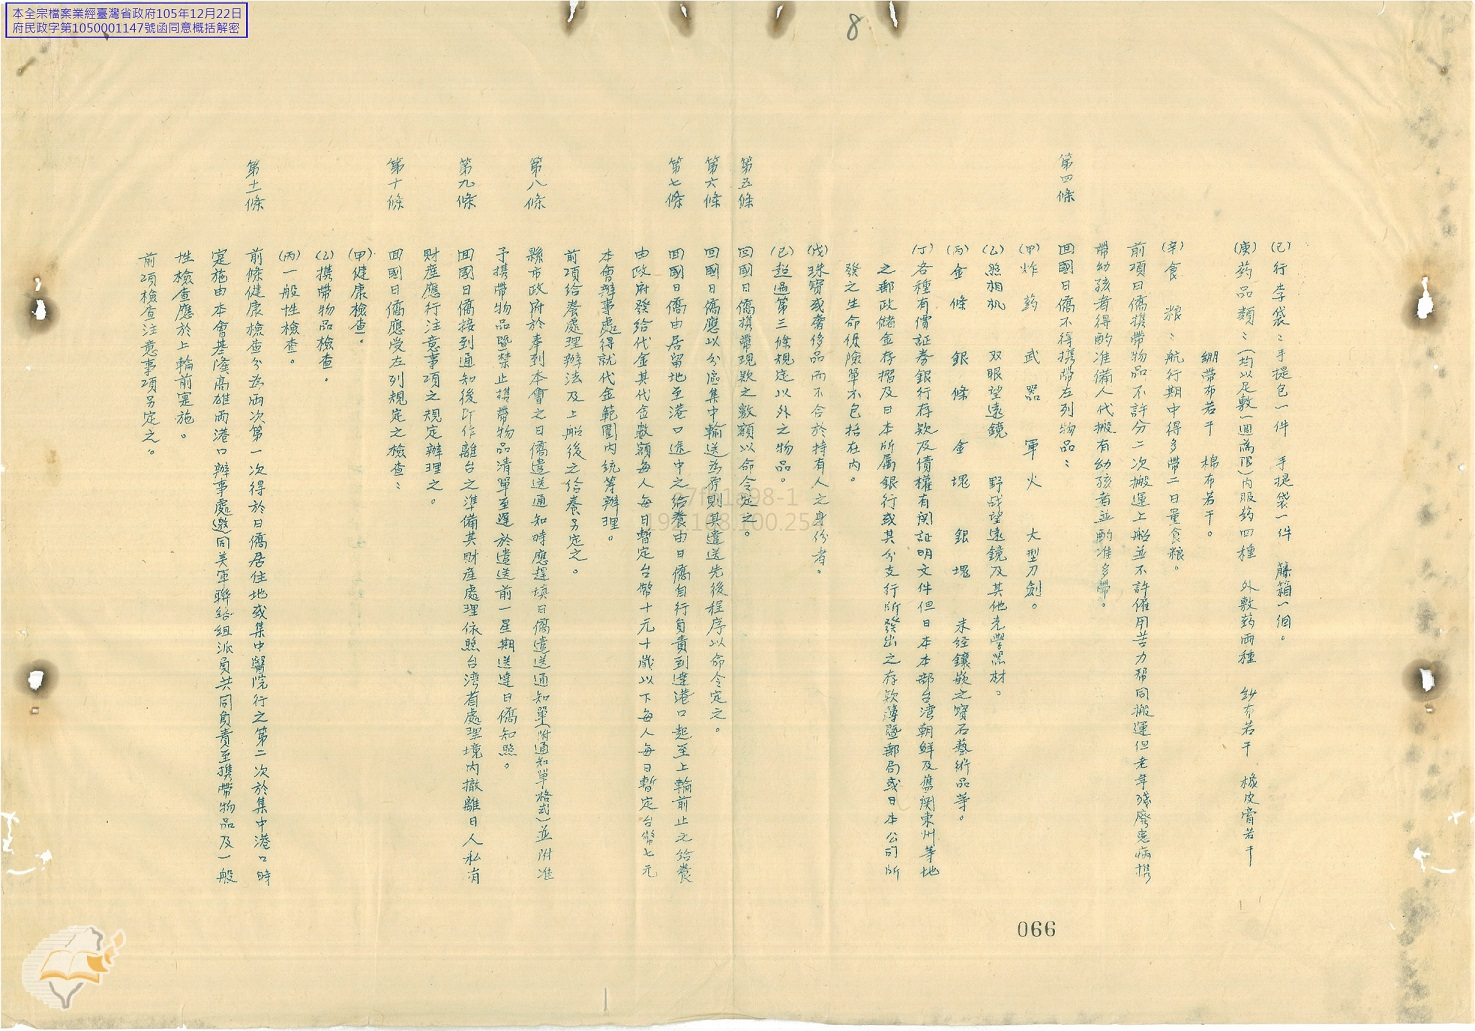 本全宗檔案業經臺灣省政府105年12月22日
府民政字第1050001147號函同意概括解密
8
(己)行李袋：手提包一件　手提袋一件　籐箱一個。
(庚)药品類：(均以足敷一週為限)內服药四種　外敷药兩種　紗布若干　橡皮膏若干
綳帶布若干　棉布若干。
(辛)食　粮：航行期中得多帶二日量食粮。
前項日僑携帶物品不許分二次搬運上船並不許僱用苦力帮同搬運但老年殘廢患病携
帶幼孩者得酌准僱人代搬有幼孩者並酌准多帶。
第四條　囬國日僑不得携帶左列物品：
(甲)炸药　武器　軍火　大型刀劍。
(乙)照相机　双眼望遠鏡　野战望遠鏡及其他光學器材。
(丙)金條　銀條　金塊　銀塊　未經鑲嵌之寶石藝術品等。
(丁)各種有價証券銀行存欵及債權有関証明文件但日本本部台湾朝鮮及舊関東州等地
之郵政儲金存摺及日本所属銀行或其分支行所發出之存欵簿暨郵局或日本公司所
發之生命保險單不包括在內。
(戊)珠寶或奢侈品而不合於持有人之身份者。
(己)超過第三條規定以外之物品。
第五條　囬國日僑携帶現欵之數額以命令定之。
第六條　囬國日僑應以分區集中輸送為原則其遣送先後程序以命令定之。
第七條　囬國日僑由居留地至港口途中之给養由日僑自行負責到達港口起至上輪前止之给養
由政府發给代金其代金數額每人每日暫定台幣十元十歲以下每人每日暫定台幣七元
本會辦事處得就代金範圍內統筹辦理。
前項给養處理辦法及上船後之给養另定之。
第八條　縣市政府於奉到本會之日僑遣送通知時應趕填日僑遣送通知單(附通知單格式)並附准
予携帶物品暨禁止携帶物品清單至遲於遣送前一星期送達日僑知照。
第九條　囬國日僑接到通知後即作離台之準備其財產處理依照台湾省處理境內撤離日人私有
財產應行注意事項之規定辦理之。
第十條　囬國日僑應受左列規定之檢查：
(甲)健康檢查。
(乙)携帶物品檢查。
(丙)一般性檢查。
第十一條　前條健康檢查分為兩次第一次得於日僑居住地或集中醫院行之第二次於集中港口時
寔施由本會基隆高雄兩港口辦事處邀同美軍聯络組派員共同負責至携帶物品及一般
性檢查應於上輪前寔施。
前項檢查注意事項另定之。
066